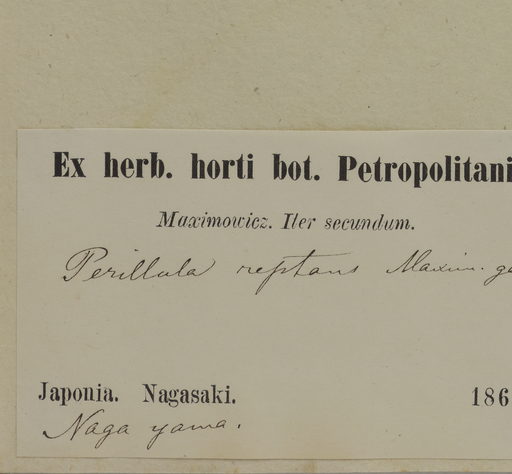 Ex herb. horti bot. Petropolitani
Maximowicz. Iter secundum.
Perillula reptans Maxim. ge
Japonia. Nagasaki. 186
Naga yama.